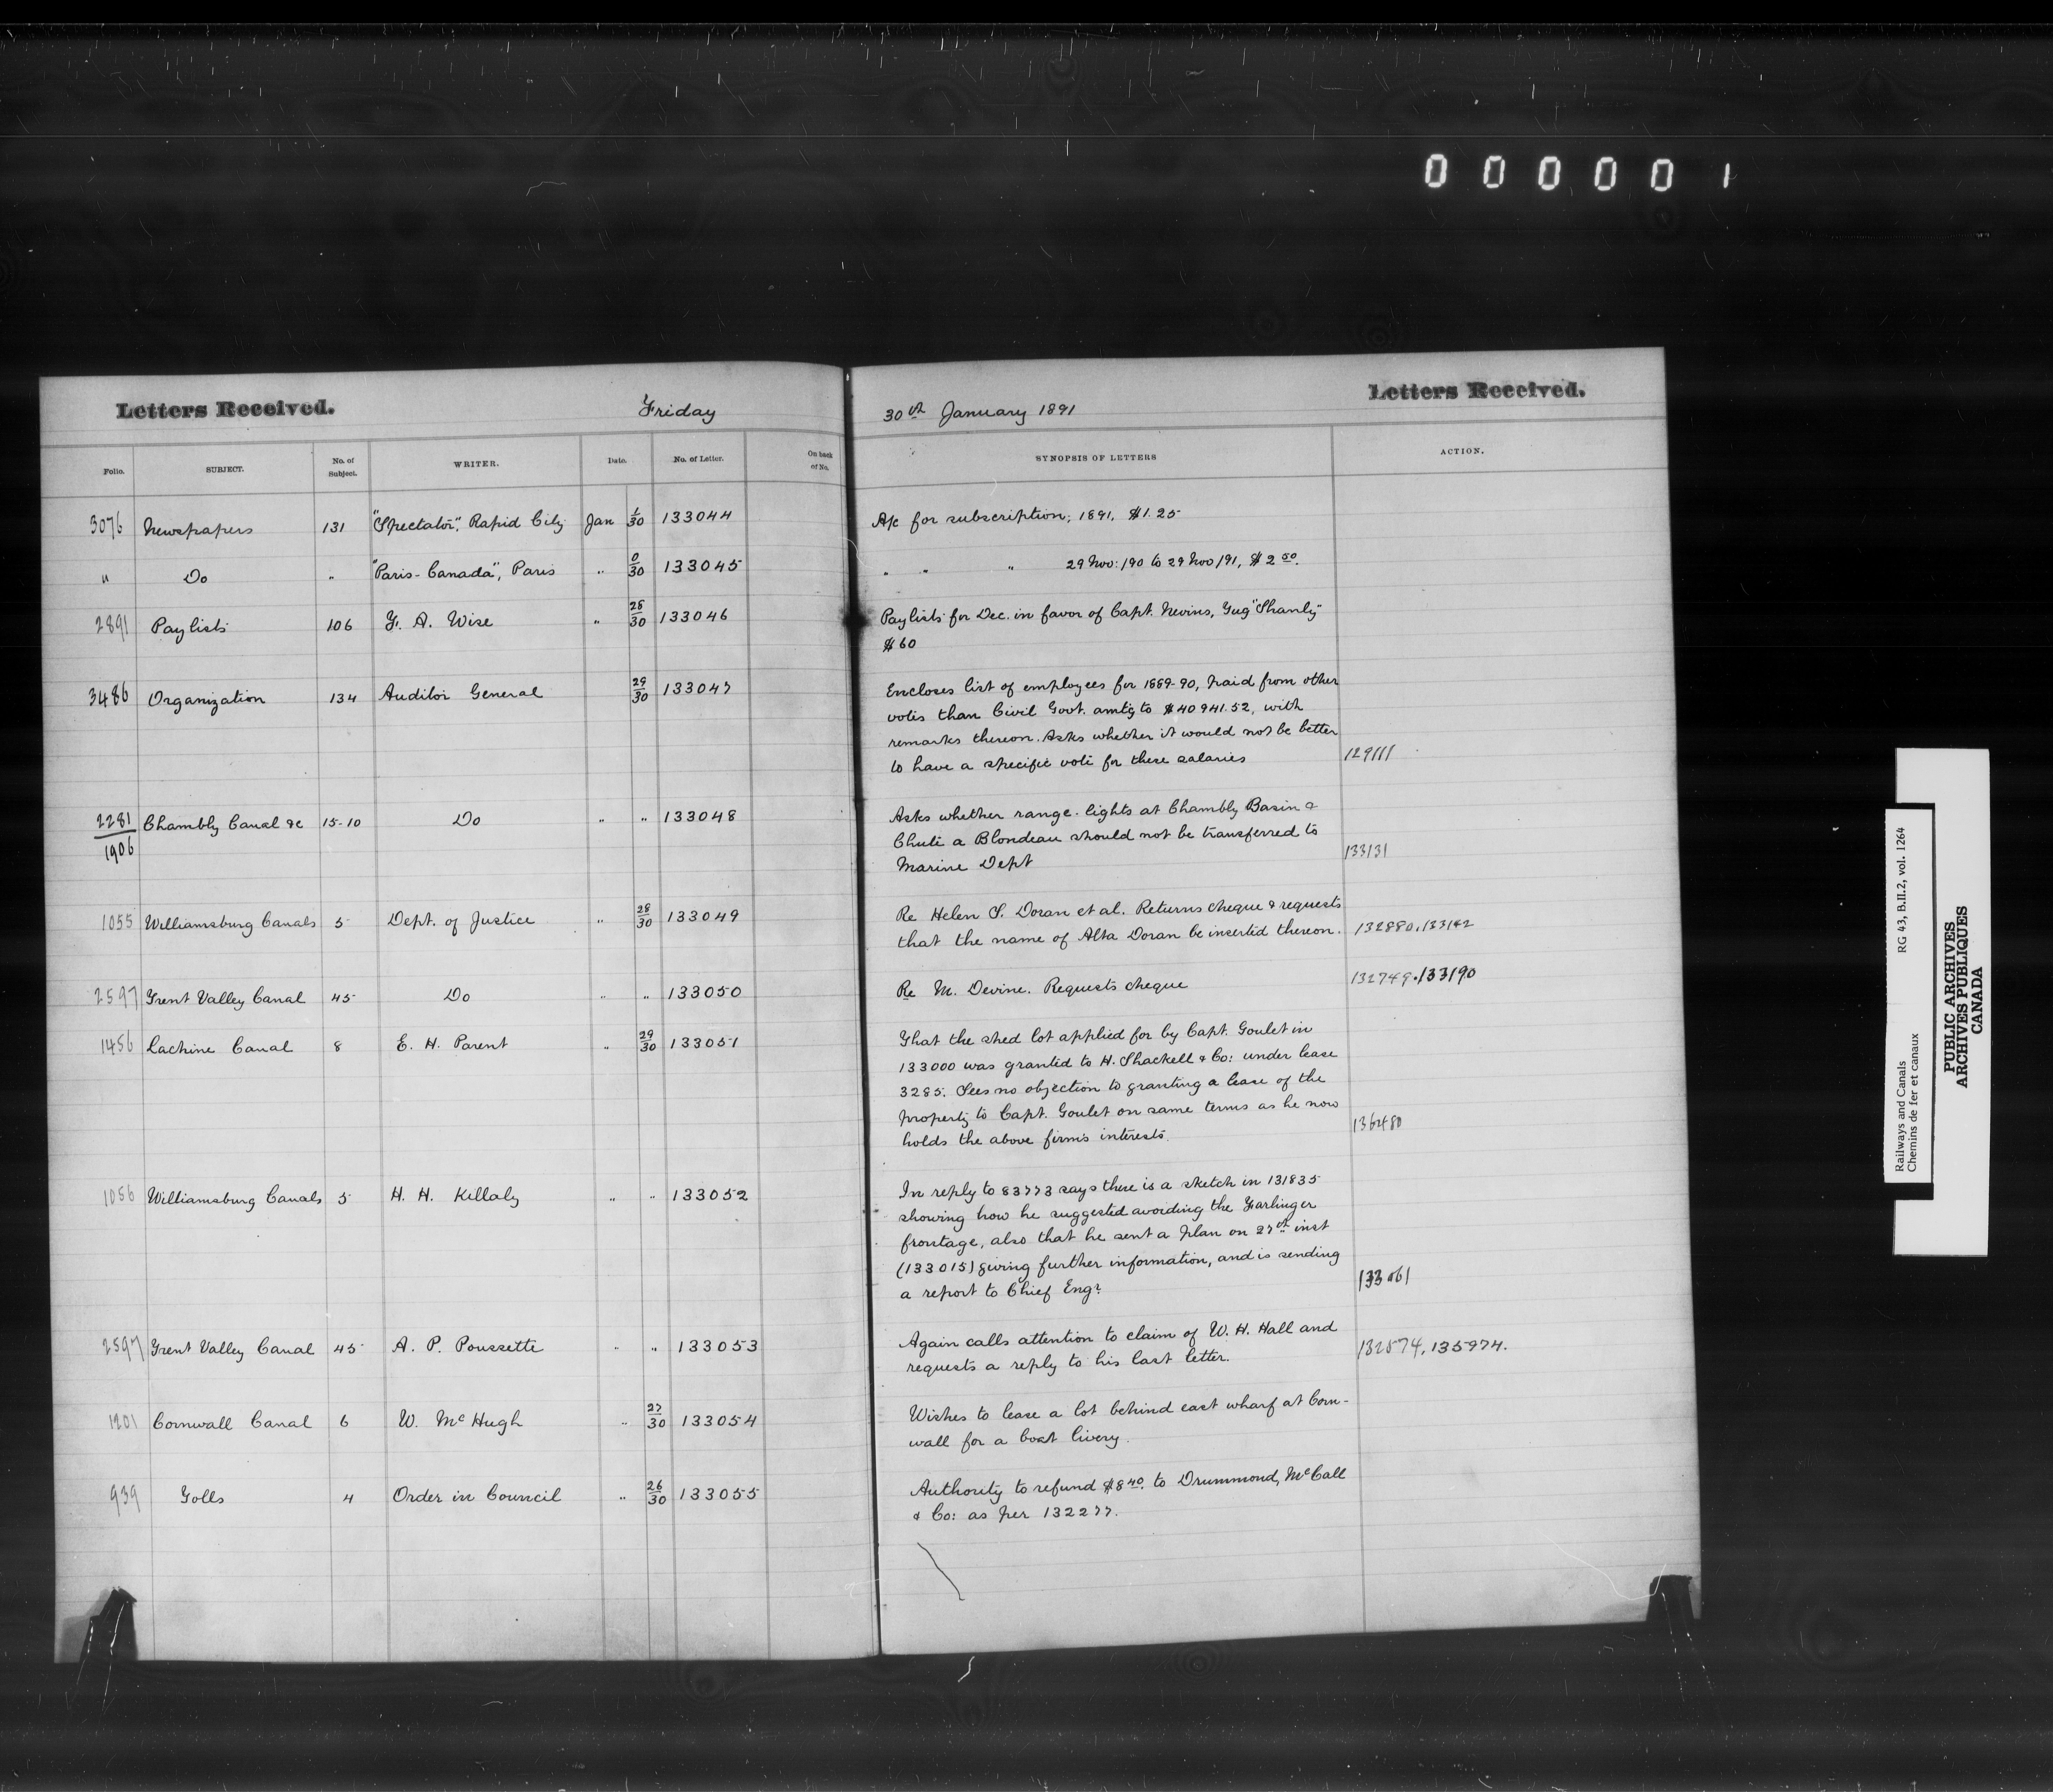 000001
Letters Received. Friday 30th January 1891 Letters Received.
Folio. SUBJECT. No. of Subject. WRITER. Date. No. of Letter. On back of No. SYNOPSIS OF LETTERS ACTION.
3076 Newspapers 131 "Spectator", Rapid City Jan 1/30 133044 A/c for subscription, 1891, $1.25
" Do " "Paris-Canada", Paris " 0/30 133045 " " " 29 Nov: /90 to 29 Nov /91, $2 50.
2891 Paylists 106 F. A. Wise " 28/30 133046 Paylists for Dec. in favor of Capt. Nevins, Tug "Shanly"
$60
3486 Organization 134 Auditor General 29/30 133047 Encloses list of employees for 1889-90, paid from other
votes than Civil Govt. amtg to $40941.52, with
remarks thereon. Asks whether it would not be better
to have a specific vote for these salaries 129111
2281/1906 Chambly Canal &c 15-10 Do " " 133048 Asks whether range-lights at Chambly Basin &
Chute a Blondeau should not be transferred to
Marine Dept 133131
1055 Williamsburg Canals 5 Dept. of Justice " 28/30 133049 Re Helen S. Doran et al. Returns cheque & requests
that the name of Alta Doran be inserted thereon. 132880, 133142
2597 Trent Valley Canal 45 Do " " 133050 Re M. Devine. Requests cheque 132749. 133190
1456 Lachine Canal 8 E. H. Parent " 29/30 133051 That the shed lot applied for by Capt. Goulet in
133000 was granted to H. Shackell & Co: under lease
3285. Sees no objection to granting a lease of the
property to Capt. Goulet on same terms as he now
holds the above firm's interests. 136480
1056 Williamsburg Canals 5 H. H. Killaly " " 133052 In reply to 83773 says there is a sketch in 131835
showing how he suggested avoiding the Farlinger
frontage, also that he sent a plan on 27th inst
(133015) giving further information, and is sending
a report to Chief Engr. 133061
2597 Trent Valley Canal 45 A. P. Poussette " " 133053 Again calls attention to claim of W. H. Hall and
requests a reply to his last letter. 132574, 135974.
1201 Cornwall Canal 6 W. McHugh " 27/30 133054 Wishes to lease a lot behind east wharf at Corn-
wall for a boat livery.
939 Tolls 4 Order in Council " 26/30 133055 Authority to refund $8 40. to Drummond, McCall
& Co: as per 132277.
Railways and Canals RG 43, B.II.2, vol. 1264
Chemins de fer et canaux
PUBLIC ARCHIVES
ARCHIVES PUBLIQUES
CANADA